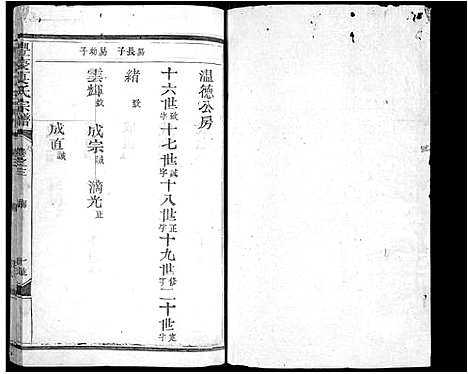 溫德公房
十六世致字十七世誠字十八世正字十九世修字二十世定字
緒致
雲輝致 成宗誠 滿光正
成直誠
易長子 易幼子
氏宗譜
卷之三